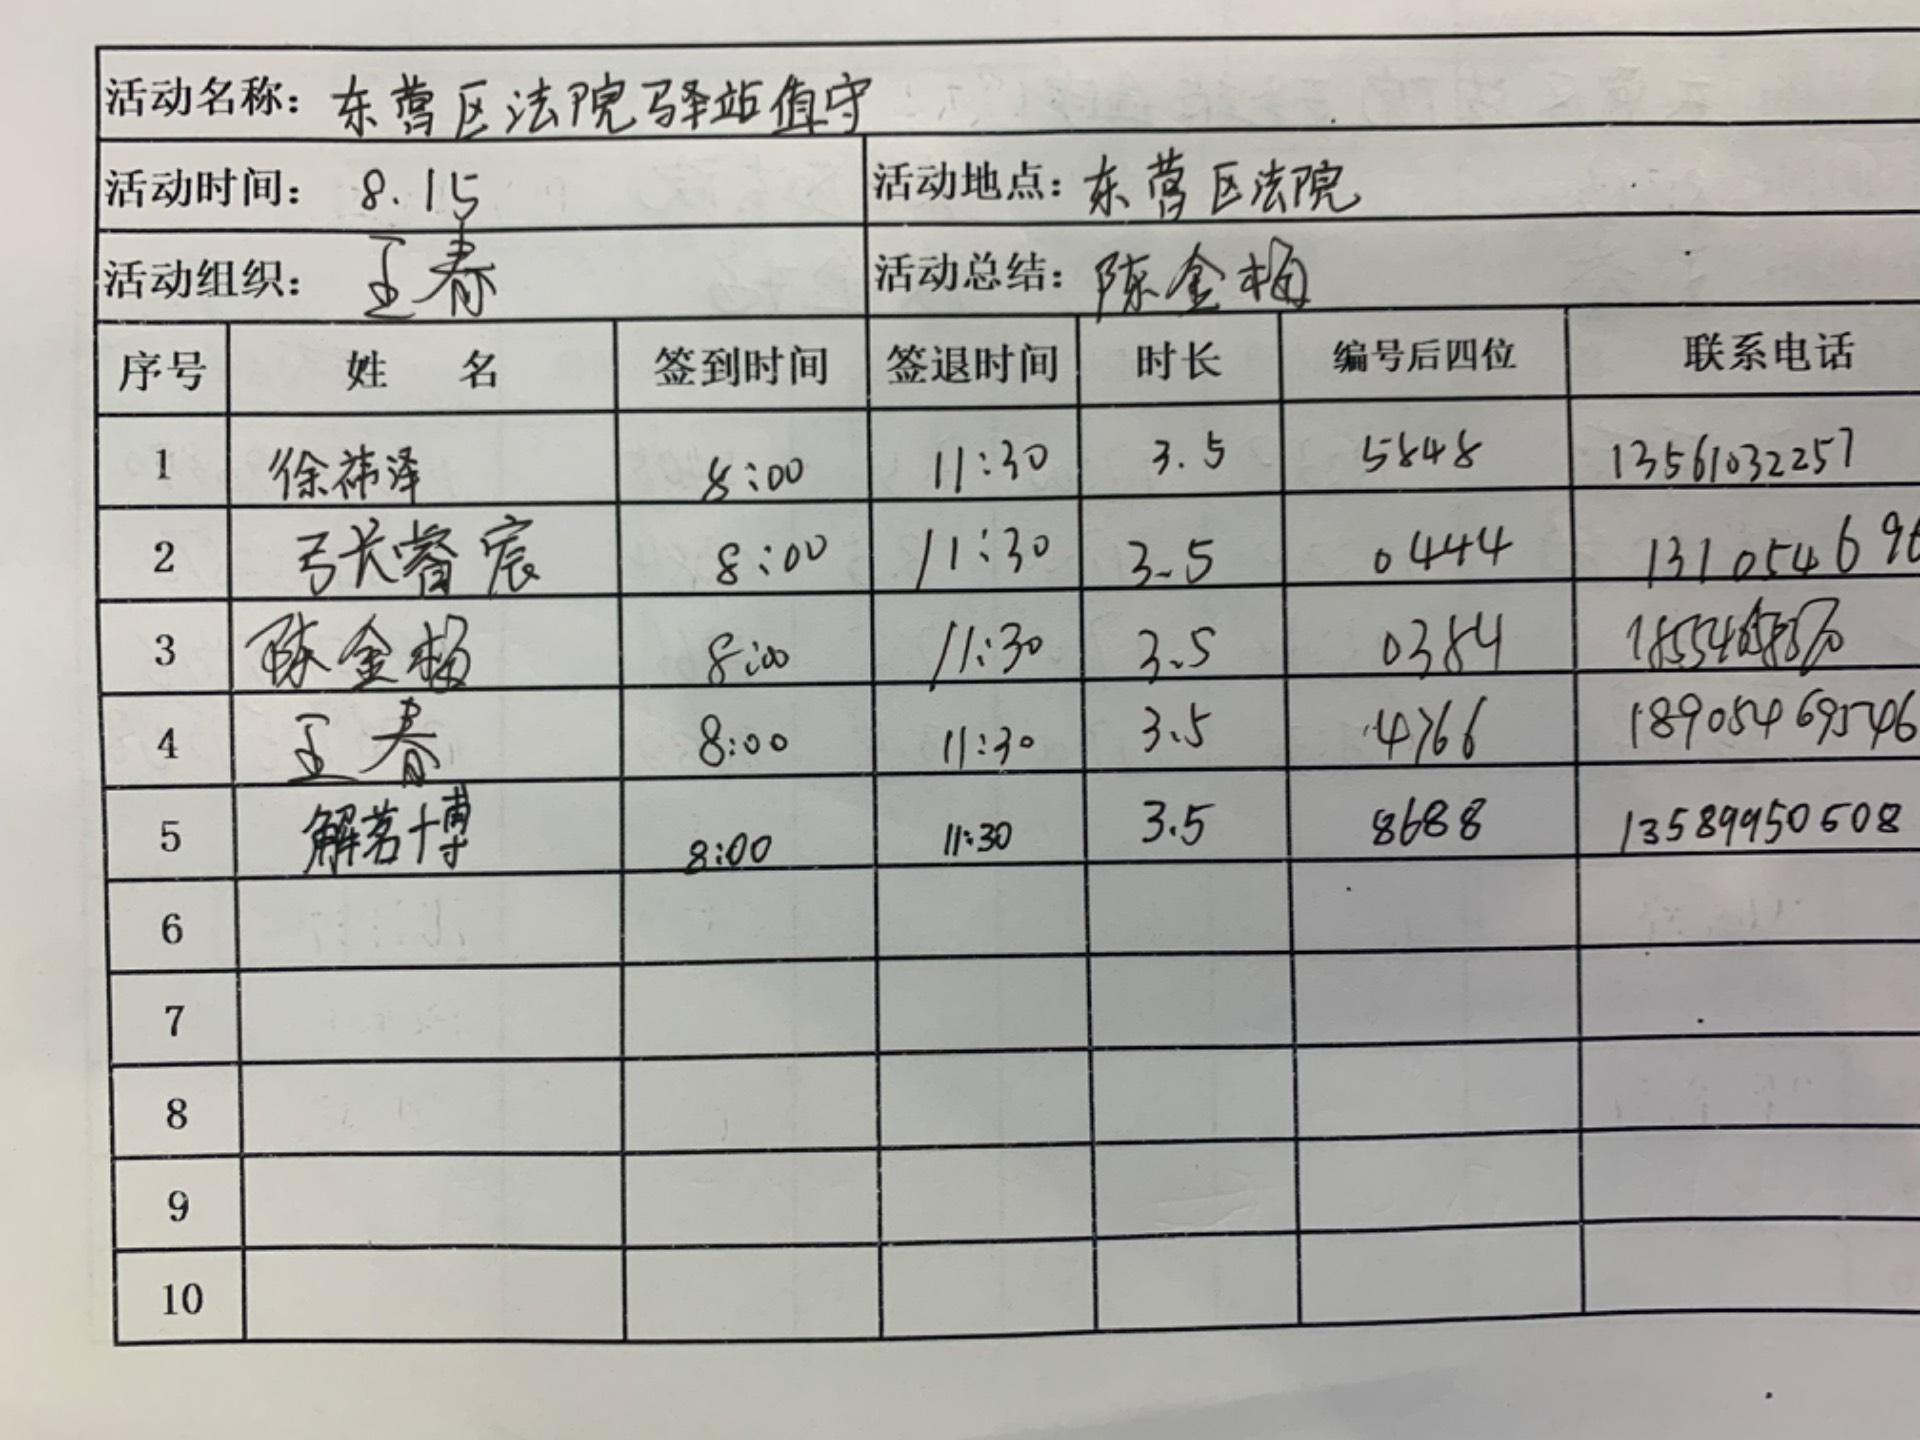 活动名称：东营区法院驿站值守
活动时间：8.15 活动地点：东营区法院
活动组织：王春 活动总结：陈金梅
序号 姓名 签到时间 签退时间 时长 编号后四位 联系电话
1 徐祎泽 8:00 11:30 3.5 5848 13561032257
2 张睿宸 8:00 11:30 3.5 0444 131054696
3 陈金梅 8:00 11:30 3.5 0384
4 王春 8:00 11:30 3.5 4766 18905469546
5 解茗博 8:00 11:30 3.5 8688 13589950608
6
7
8
9
10